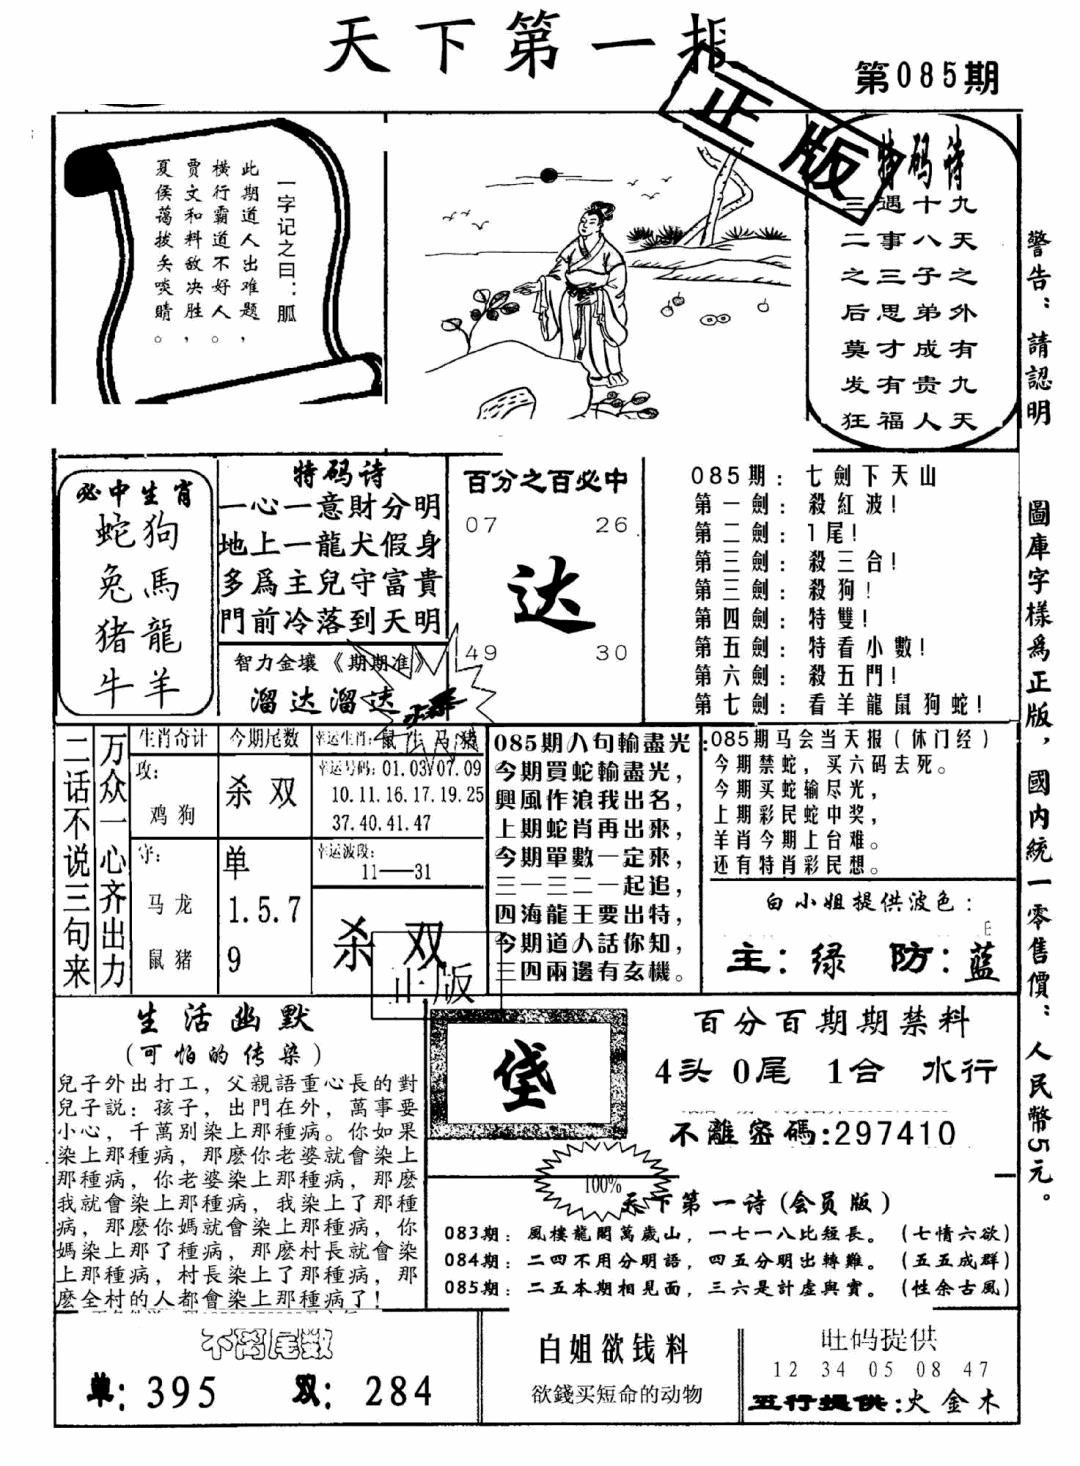 天下第一报
正版
第085期
一字记之曰：胍
此期道人出难题，
横行霸道不好人。
贾文和料敌决胜，
夏侯蔼拔矢啖睛。
特码诗
九天之外有九天
十八子弟成贵人
遇事三思才有福
三二之后莫发狂
警告：請認明
圖庫字樣為正版，國内統一零售價：人民幣5元。
必中生肖
蛇狗
兔馬
猪龍
牛羊
特码诗
一心一意財分明
地上一龍犬假身
多爲主兒守富貴
門前冷落到天明
智力金壤《期期准》
溜达溜达
百分之百必中
07 26
达
49 30
085期：七劍下天山
第一劍：殺紅波！
第二劍：1尾！
第三劍：殺三合！
第三劍：殺狗！
第四劍：特雙！
第五劍：特看小數！
第六劍：殺五門！
第七劍：看羊龍鼠狗蛇！
万众一心齐出力
二话不说三句来
生肖奇计
攻：
鸡狗
守：
马龙
鼠猪
今期尾数
杀双
单
1.5.7
9
幸运生肖：鼠牛马猪
幸运号码：01.03.07.09
10.11.16.17.19.25
37.40.41.47
幸运波段：
11—31
杀双
正版
085期八句輸盡光：
今期買蛇輸盡光，
興風作浪我出名，
上期蛇肖再出來，
今期單數一定來，
三一三二一起追，
四海龍王要出特，
今期道人話你知，
三四兩邊有玄機。
085期马会当天报（休门经）
今期禁蛇，买六码去死。
今期买蛇输尽光，
上期彩民蛇中奖，
羊肖今期上台难。
还有特肖彩民想。
白小姐提供波色：
主：绿 防：蓝
生活幽默
（可怕的传染）
兒子外出打工，父親語重心長的對
兒子説：孩子，出門在外，萬事要
小心，千萬别染上那種病。你如果
染上那種病，那麽你老婆就會染上
那種病，你老婆染上那種病，那麽
我就會染上那種病，我染上了那種
病，那麽你媽就會染上那種病，你
媽染上那了種病，那麽村長就會染
上那種病，村長染上了那種病，那
麽全村的人都會染上那種病了！
垡
百分百期期禁料
4头 0尾 1合 水行
不離密碼：297410
100%
天下第一诗（会员版）
083期：風樓龍閣萬歲山，一七一八比短長。（七情六欲）
084期：二四不用分明語，四五分明出轉難。（五五成群）
085期：二五本期相見面，三六是計虚與實。（性余古風）
不离尾数
单：395 双：284
白姐欲钱料
欲錢买短命的动物
旺码提供
12 34 05 08 47
五行提供：火金木